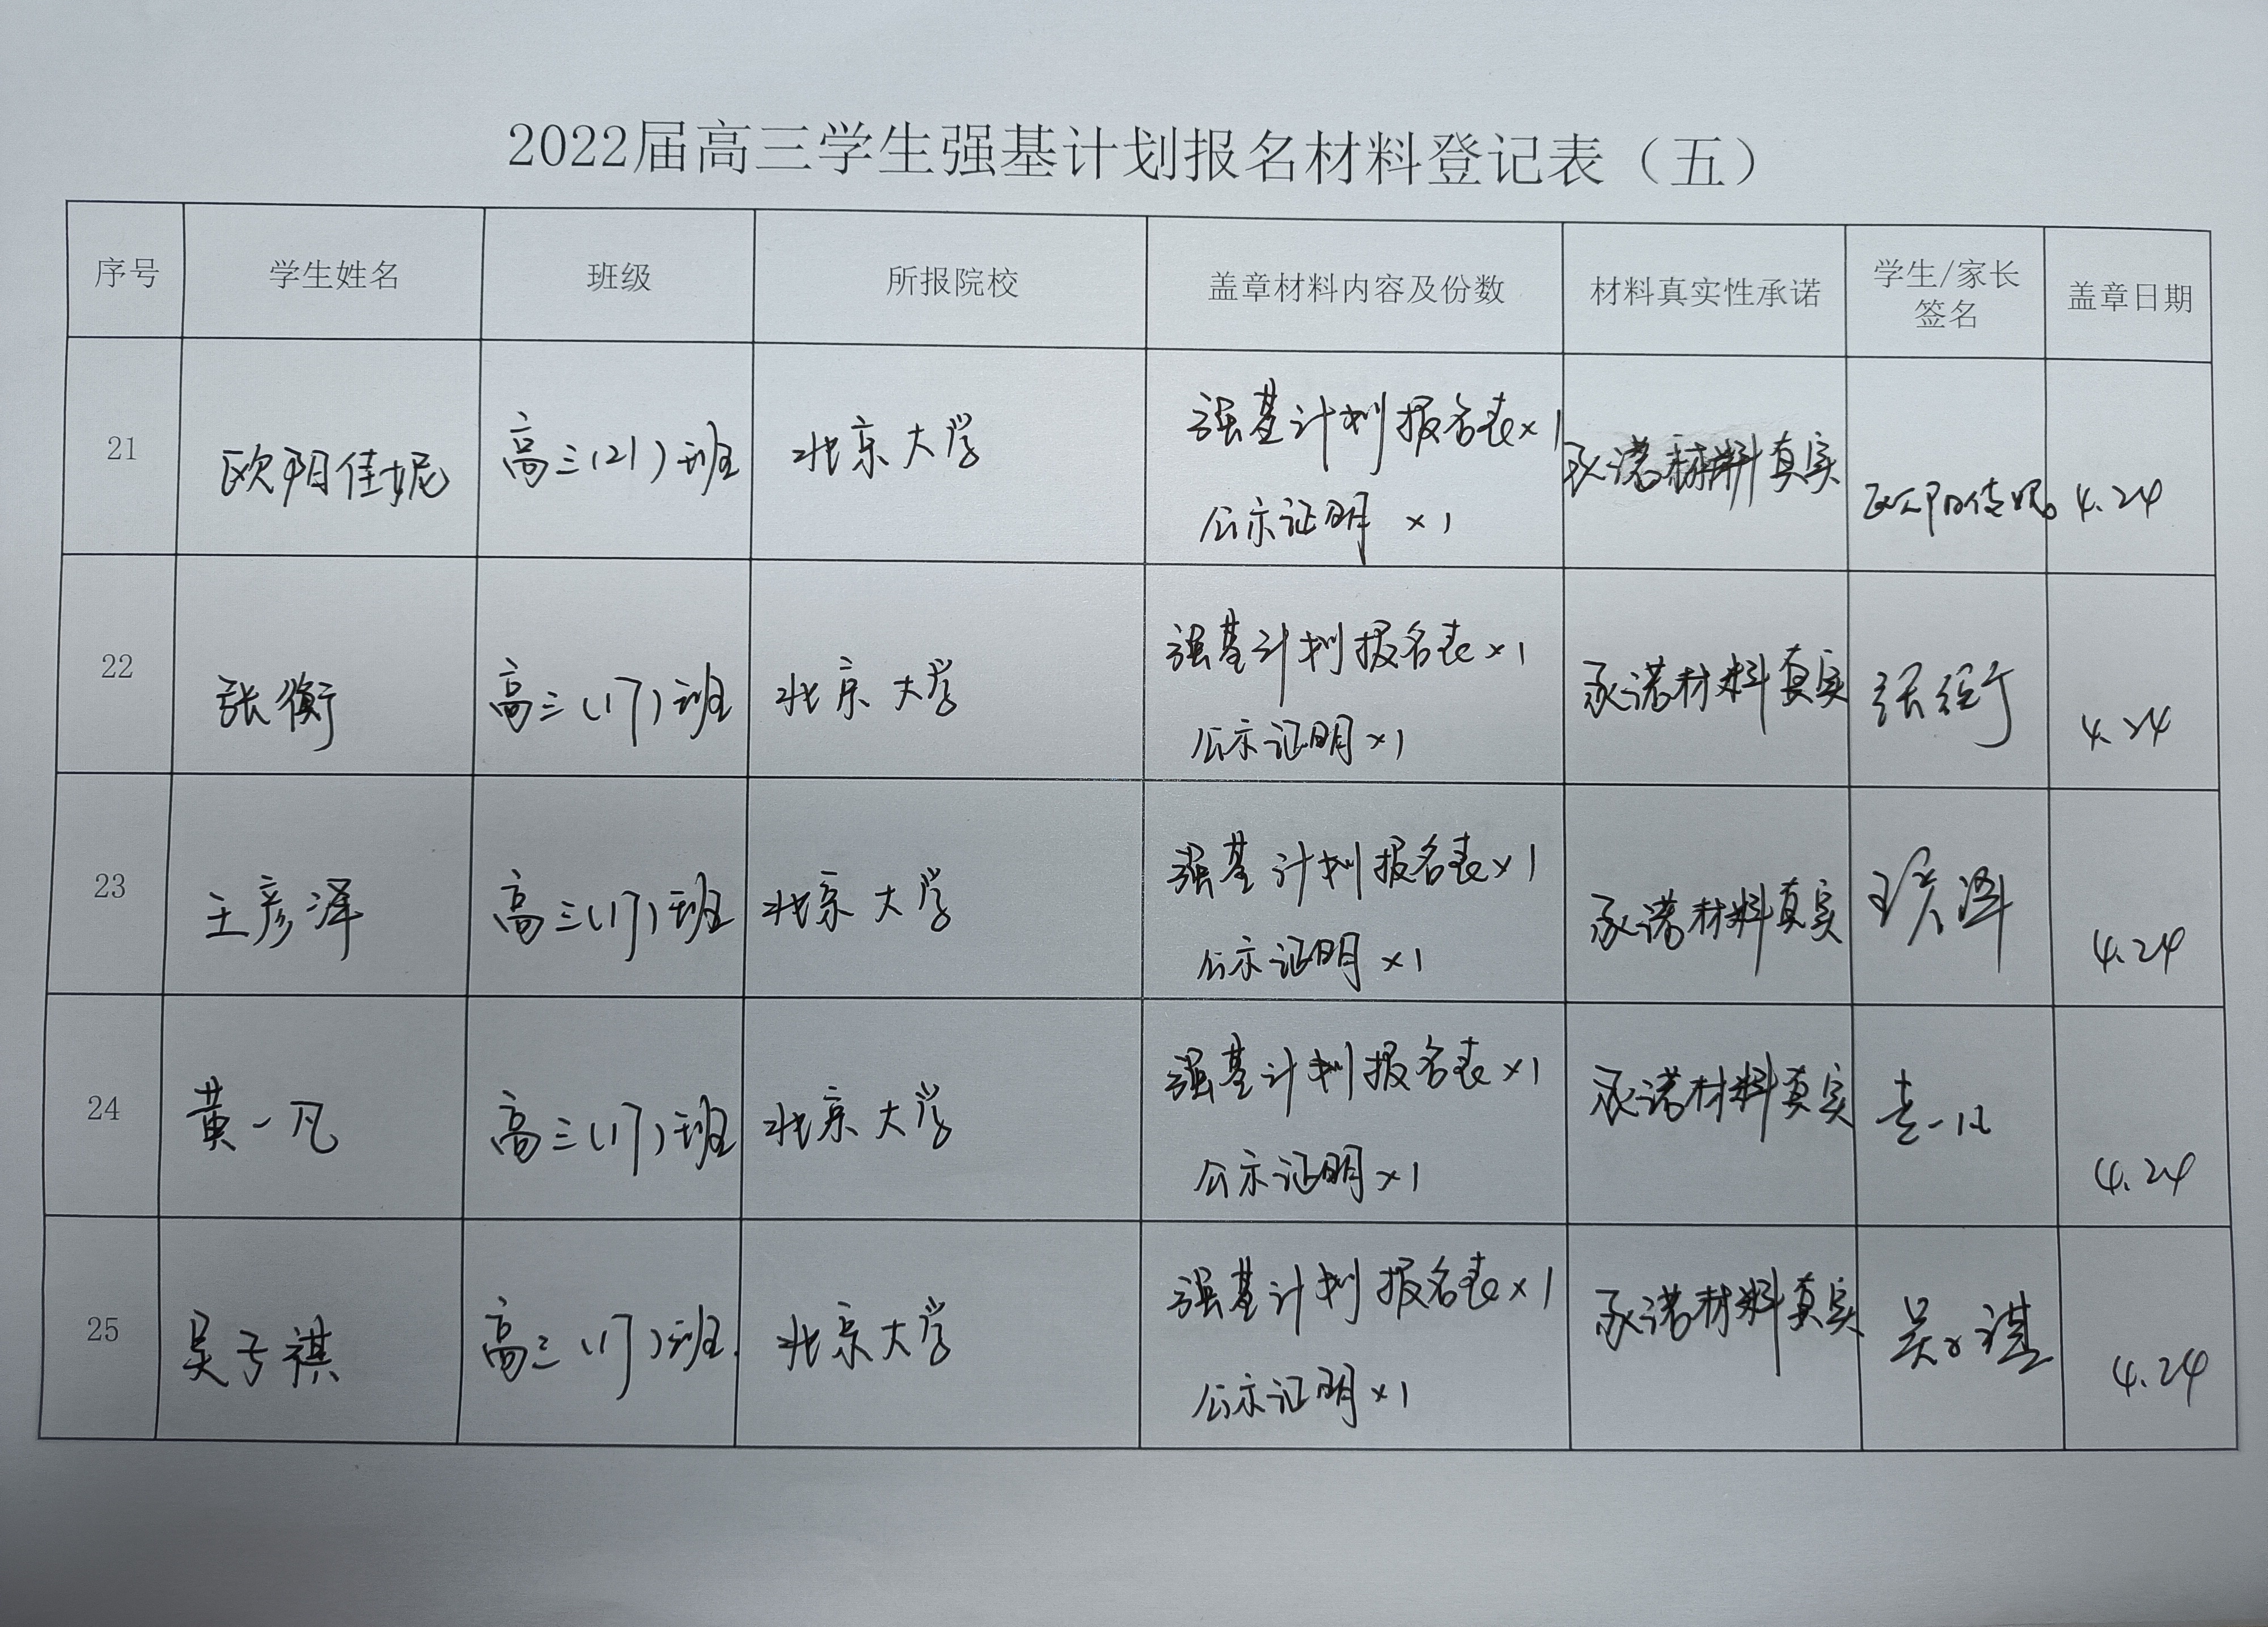 2022届高三学生强基计划报名材料登记表（五）
序号 学生姓名 班级 所报院校 盖章材料内容及份数 材料真实性承诺 学生/家长签名 盖章日期
21 欧阳佳妮 高三(21)班 北京大学 强基计划报名表×1 承诺材料真实 欧阳佳妮 4.24
公示证明 ×1
22 张衡 高三(17)班 北京大学 强基计划报名表×1 承诺材料真实 张衡 4.24
公示证明×1
23 王彦泽 高三(17)班 北京大学 强基计划报名表×1 承诺材料真实 王彦泽 4.24
公示证明×1
24 黄一凡 高三(17)班 北京大学 强基计划报名表×1 承诺材料真实 黄一凡 4.24
公示证明×1
25 吴子祺 高三(17)班 北京大学 强基计划报名表×1 承诺材料真实 吴子祺 4.24
公示证明×1